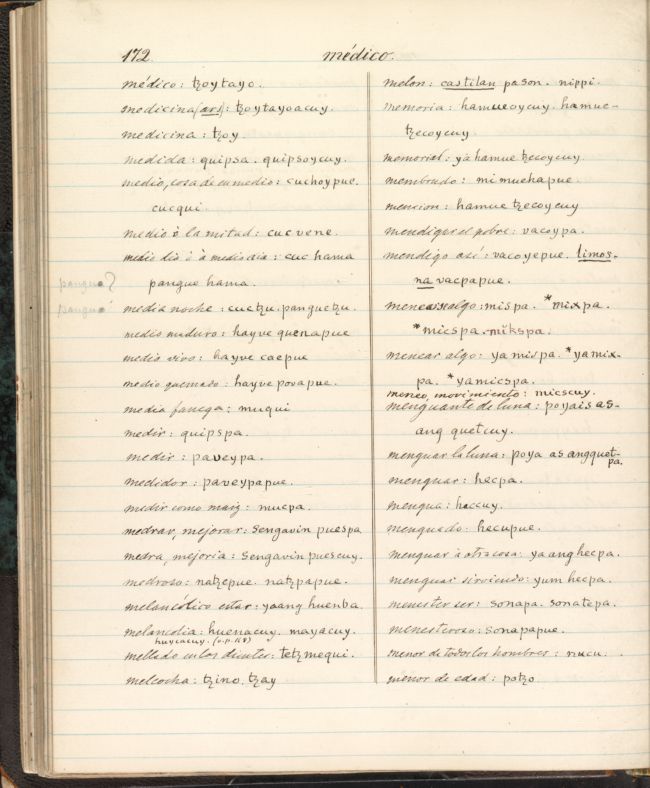 172
médico.
médico: tzoytayo.
medicina (ars): tzoytayoacuy.
medicina: tzoy.
medida: quipsa. quipsoycuy.
medio, cosa de en medio: cuchoypue.
cucqui.
medio ó la mitad: cucvene.
medio dia ó à medio dia: cuc hama
pangue hama.
pangue?
pangue
media noche: cuctzu. panguetzu.
medio maduro: hayve quenapue
medio vivo: hayve caepue
medio quemado: hayve povapue.
media fanega: muqui
medir: quipspa.
medir: paveypa.
medidor: paveypapue.
medir como maiz: mucpa.
medrar, mejorar: sengavin puespa
medra, mejoria: sengavin puescuy.
medroso: natzepue. natzpapue.
melancólico estar: yaang huenba.
melancolia: huenacuy. mayacuy.
huycacuy.
mellado en los dientes: tetzmequi.
melcocha: tzino. tzay
melon: castilan pason. nippi.
memoria: hamueoycuy. hamue-
tzecoycuy.
memorial: ya hamue tzecoycuy
membrado: mimuchapue.
mencion: hamue tzecoycuy
mendigar el pobre: vacoypa.
mendigo asi: vacoyepue. limos-
na vacpapue.
menearse algo: mispa. *mixpa.
*micspa. mikspa.
menear algo: ya mispa. *yamix-
pa. *yamicspa.
meneo, movimiento: micscuy.
menguante de luna: poyais as-
ang quetcuy.
menguar la luna: poya as angquet-
pa.
menguar: hecpa.
mengua: haccuy.
menguado: hecupue.
menguar à otra cosa: ya anghecpa.
menguar sirviendo: yum hecpa.
menester ser: sonapa. sonatepa.
menesteroso: sonapapue.
menor de todos los hombres: nucu.
menor de edad: potzo